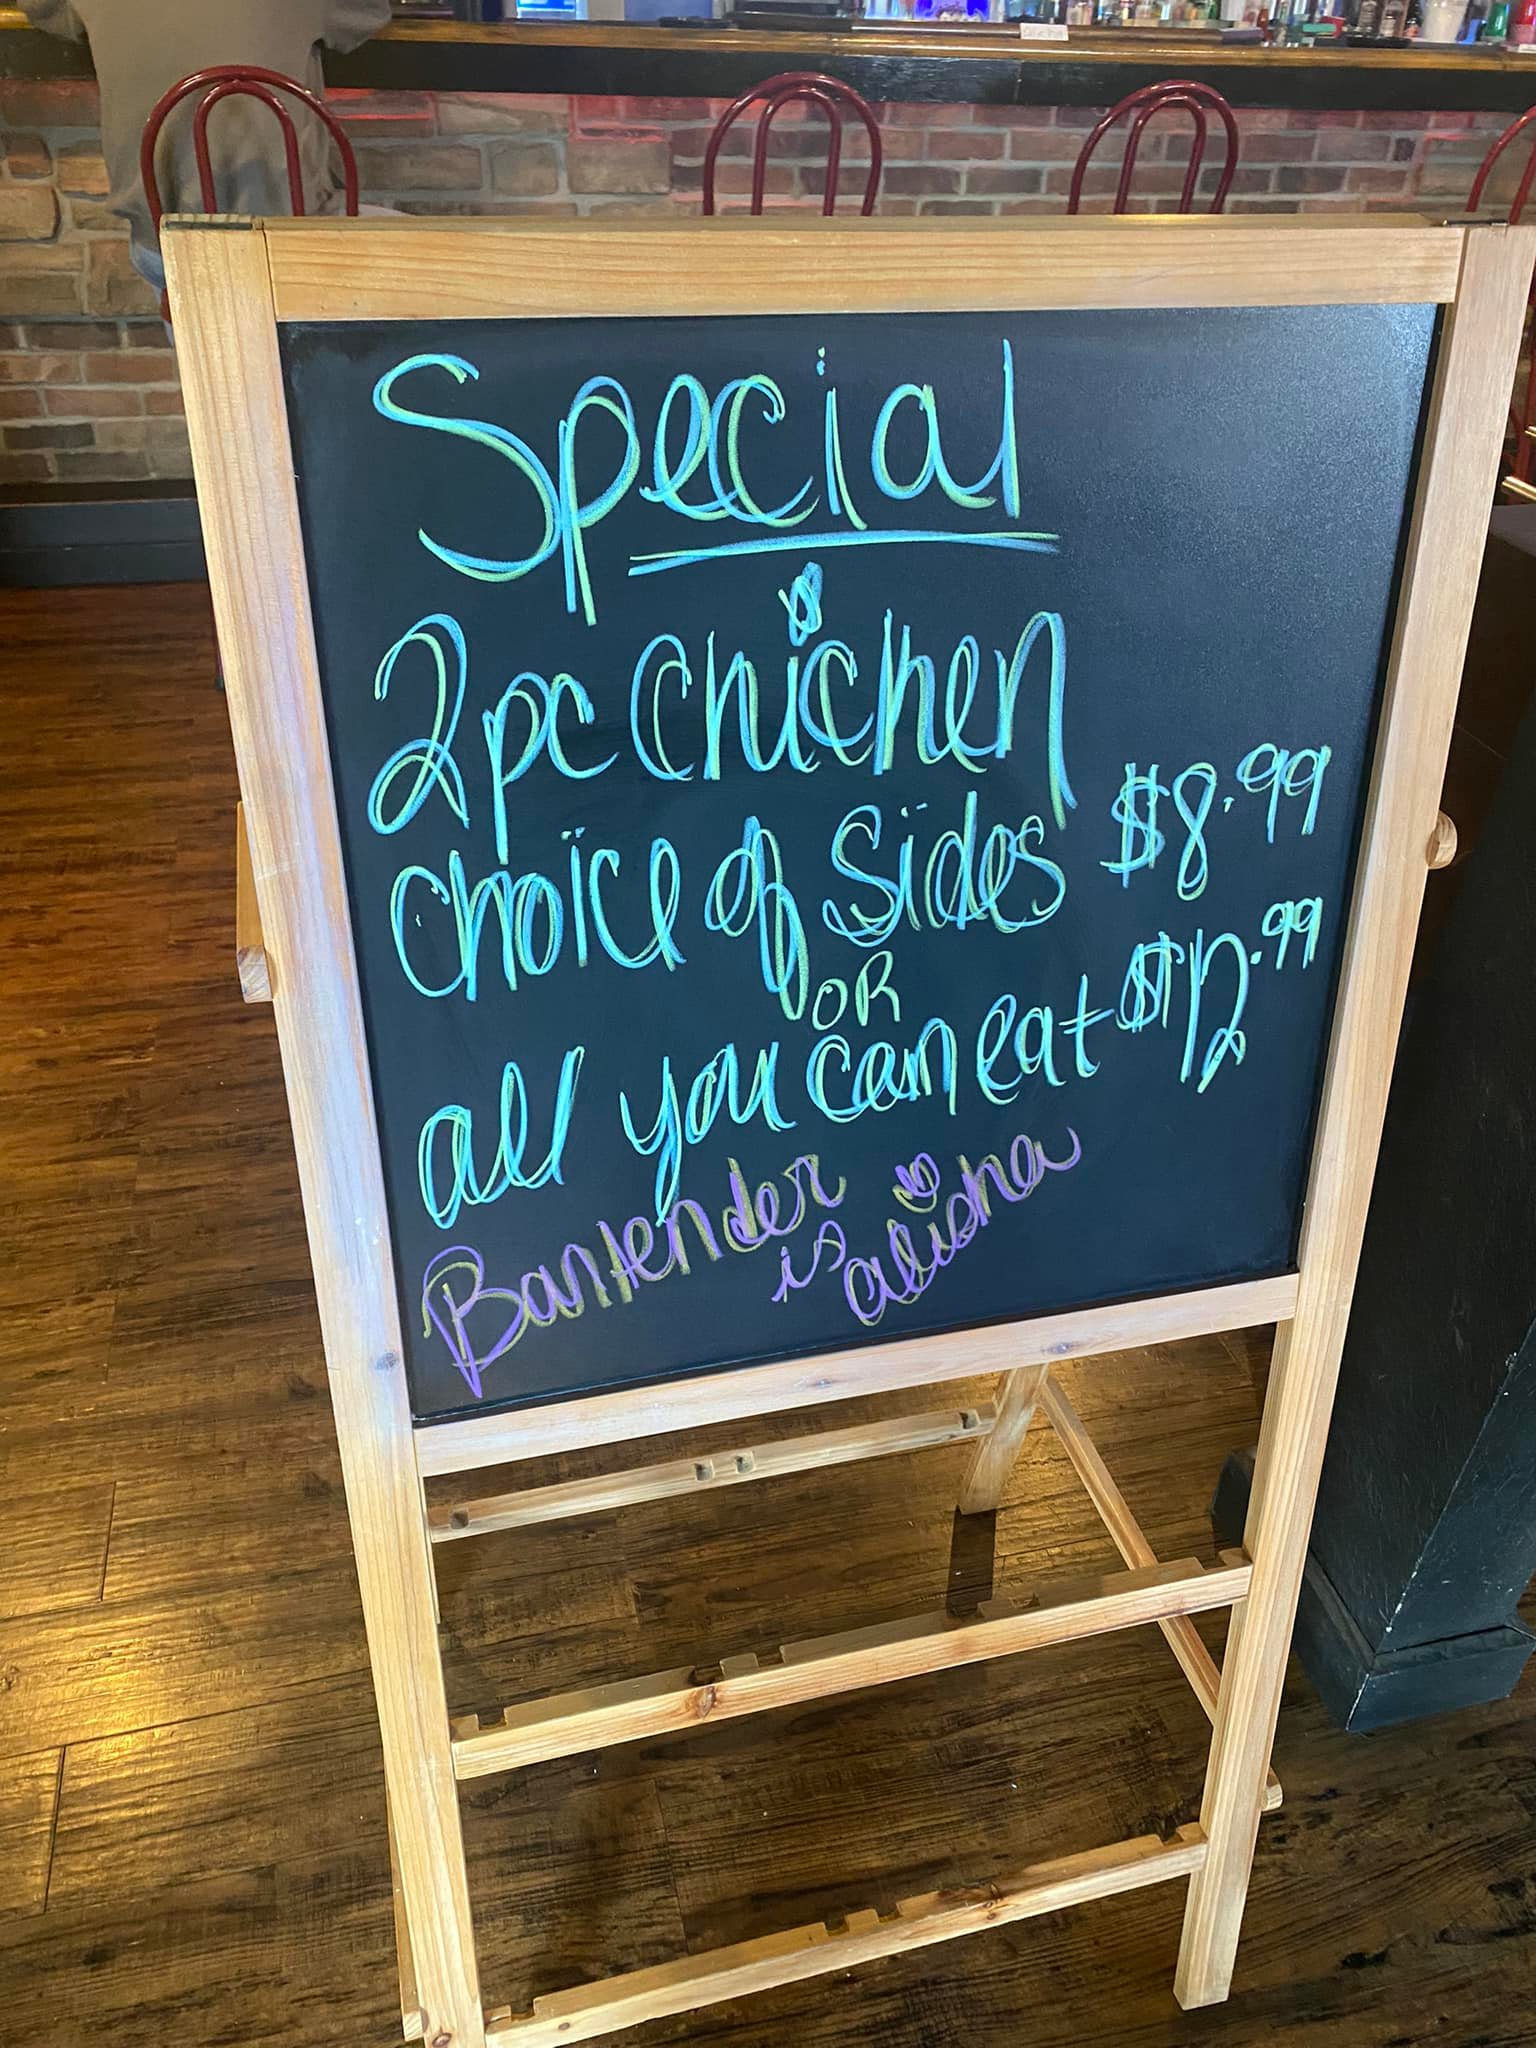 Special
2pc chicken
choice of sides $8.99
OR
all you can eat $12.99
Bartender
is alisha